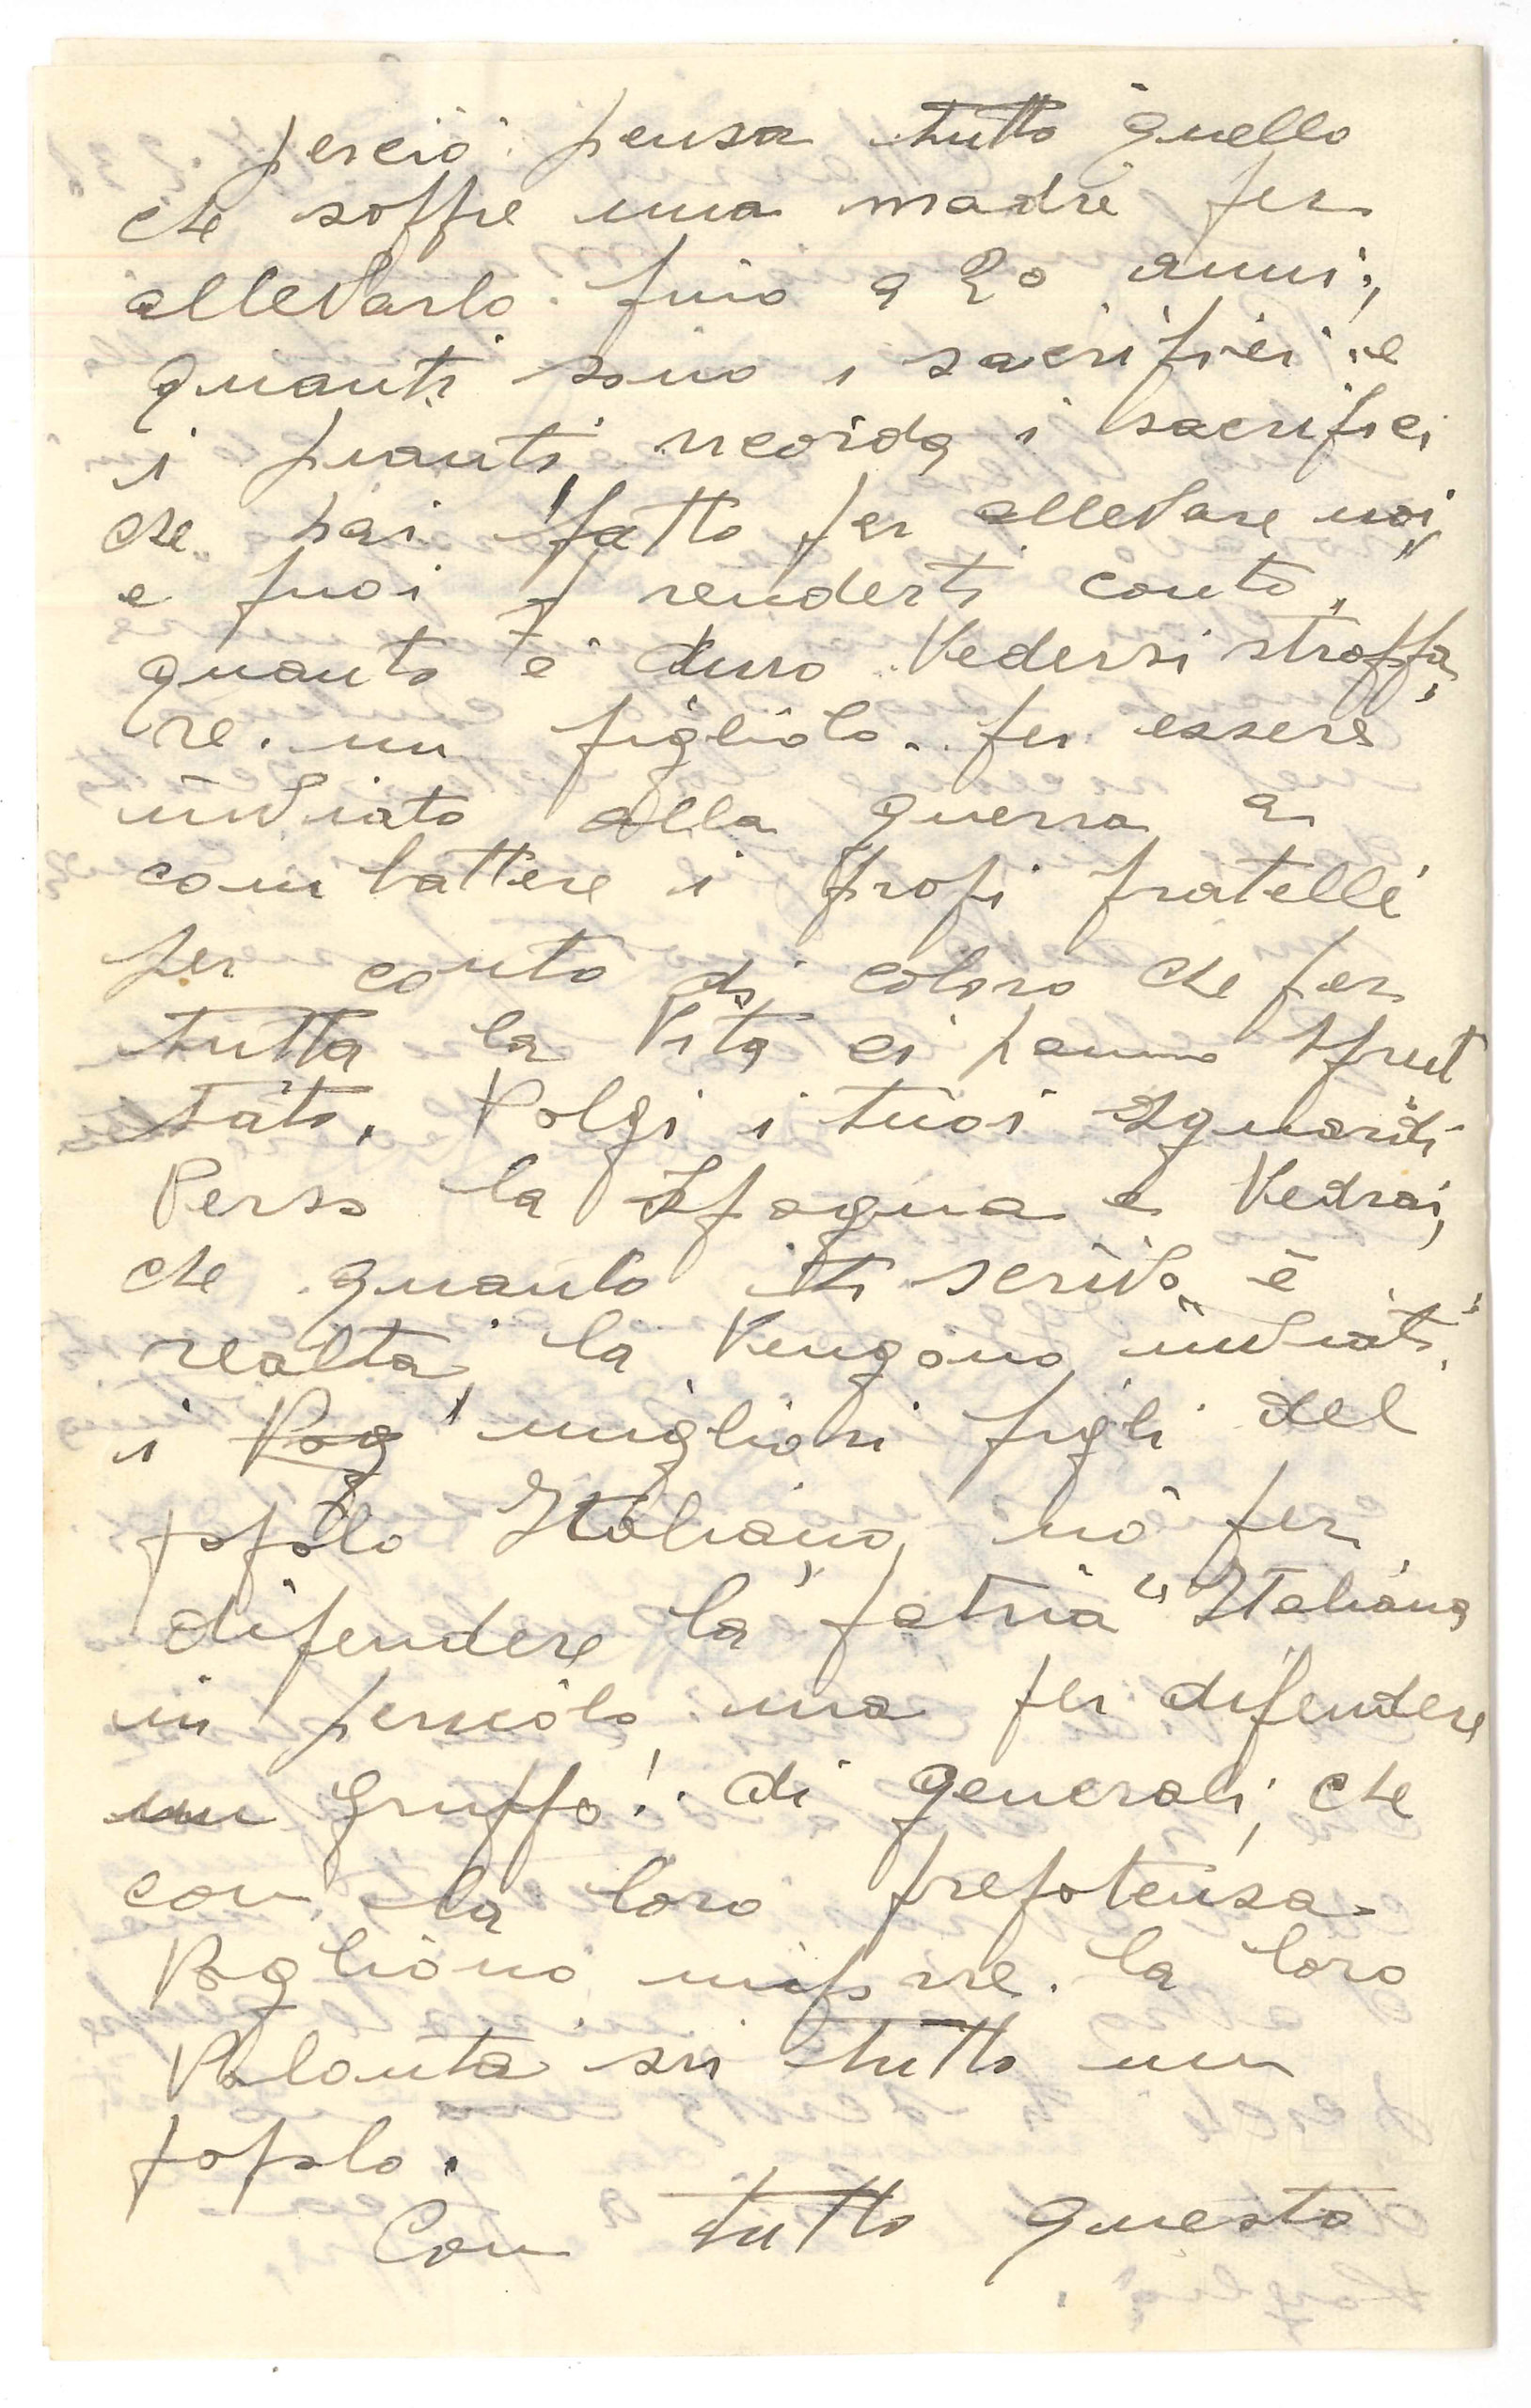 perciò pensa tutto quello
che soffre una madre per
allevarlo fino a 20 anni,
quanti sono i sacrifici e
i pianti, ricorda i sacrifici
che hai fatto per allevare noi,
e puoi renderti conto,
quanto è duro vedersi strappa
re. un figliolo. per essere
inviato alla guerra a
combattere i propi fratelli
per conto di coloro che per
tutta la vita ci hanno sfrut
tato. Volgi i tuoi sguardi
verso la Spagna e vedrai,
che quanto ti scrivo, è
realtà, la vengono inviati
i Vog migliori figli del
popolo Italiano, nò per
difendere la "patria" Italiana
in pericolo ma per difendere
un gruppo! di generali, che
con la loro prepotensa
vogliono inporre. la loro
volontà su tutto un
popolo.
Con tutto questo